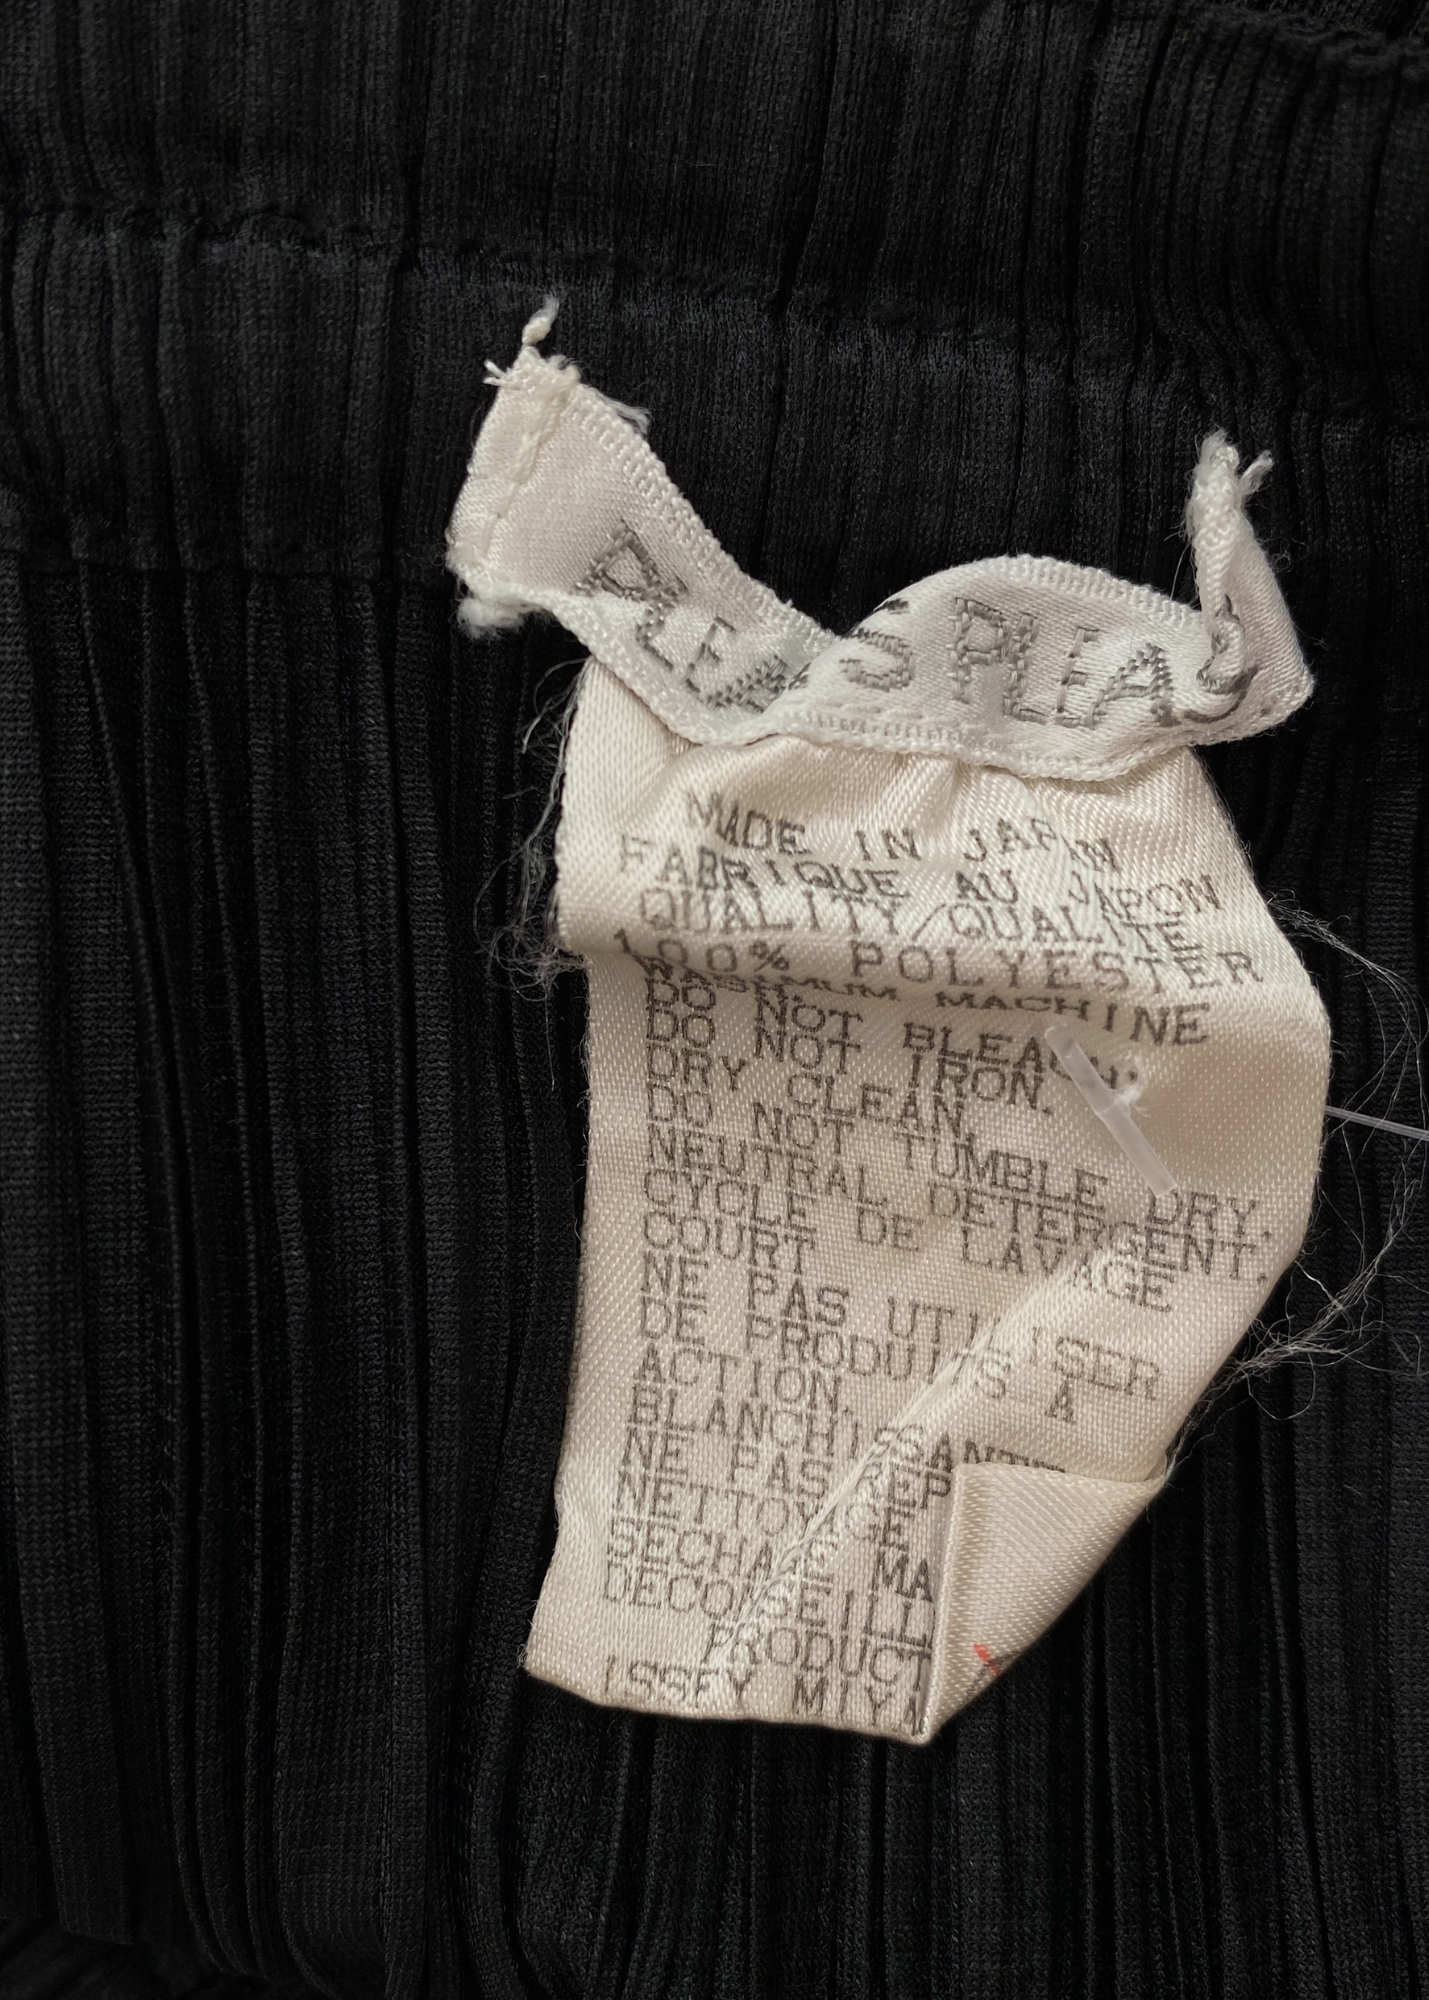 PLEAS PLEAS
MADE IN JAPAN
FABRIQUE AU JAPON
QUALITY/QUALITE
100% POLYESTER
MACHINE
DO NOT BLEACH.
DO NOT IRON.
DRY CLEAN
DO NOT TUMBLE DRY.
NEUTRAL DETERGENT.
CYCLE DE LAVAGE
COURT
NE PAS UTILISER
DE PRODUITS A
ACTION.
BLANCHISSANTE
NE PAS REP
NETTOYAGE
SECHAGE MA
DECONSEILL
PRODUCT
ISSEY MIYA